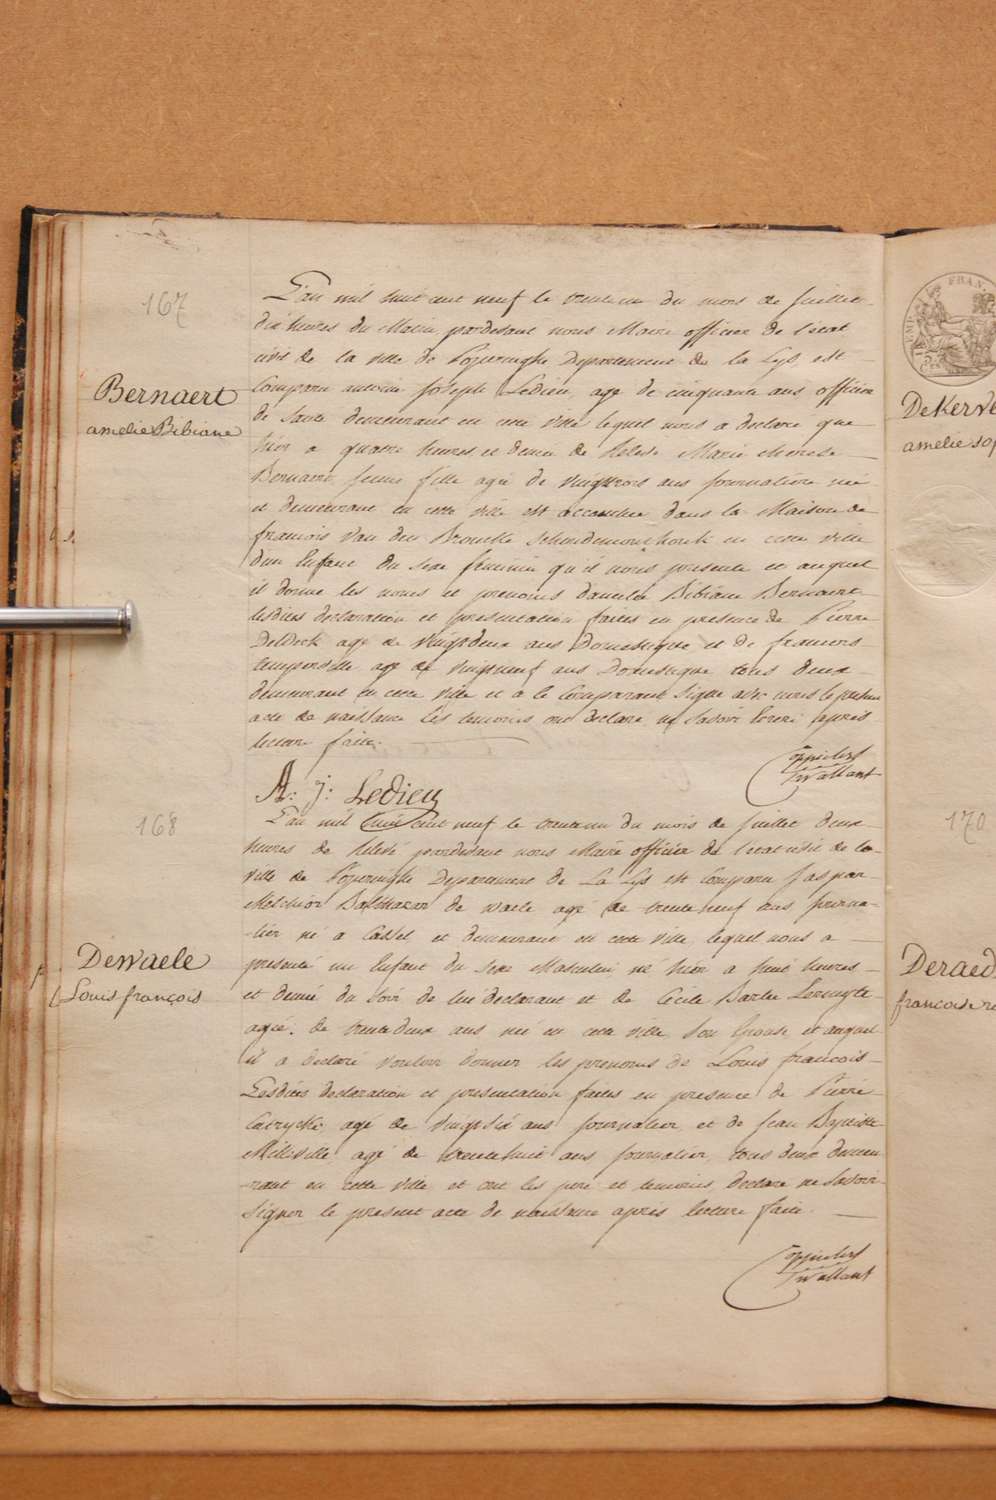 167
L'an mil huit cent neuf le trente un du mois de Juillet
dix heures du Matin, pardevant nous Maire officier de l'état
civil de la ville de Poperinghe Departement de la Lys, est
Comparu antoine Joseph Ledieu, agé de cinquante ans officier
de Santé demeurant en cette ville lequel nous a declaré que
hier a quatre heures et demie de Relevé Marie therese
Bernaert, jeune fille agée de vingt trois ans journaliere née
et demeurant en cette ville est accouchée dans la Maison de
francois Van den Brouckke en cette ville
d'un Enfant du sexe féminin qu'il nous presente et auquel
il donne les noms et prenoms d'amelie Bibiane Bernaert
lesdites declaration et presentation faites en presence de Pierre
agé de vingt deux ans Domestique et de francois
agé de vingt neuf ans Domestique tous deux
demeurant en cette ville et a le Comparant Signé avec nous le present
acte de naissance les temoins ont declaré ne savoir Ecrire après
lecture faite.
Bernaert
amelie Bibiane
A: J: Ledieu
168
L'an mil huit cent neuf le trente un du mois de Juillet deux
heures de Relevé pardevant nous Maire officier de l'etat civil de la
ville de Poperinghe Departement de La Lys est comparu Jaspar
Melchior Balthazar de waele agé de trente neuf ans journa-
-lier né a Cassel et demeurant en cette ville, lequel nous a
presenté un Enfant du sexe Masculin né hier a huit heures
et demie du soir de lui declarant et de Cecile Barbe
agée de trente deux ans née en cette ville, son Epouse, et auquel
il a declaré vouloir donner les prenoms de Louis francois
Lesdites declaration et presentation faites en presence de Pierre
agé de vingt six ans journalier, et de Jean Baptiste
Milleville, agé de trente huit ans journalier, tous deux demeu
-rant en cette ville et ont les pere et temoins declaré ne Savoir
Signer le present acte de naissance après lecture faite.
DeWaele
Louis françois
DeKerve
amelie sop
170
Deraed
francoise